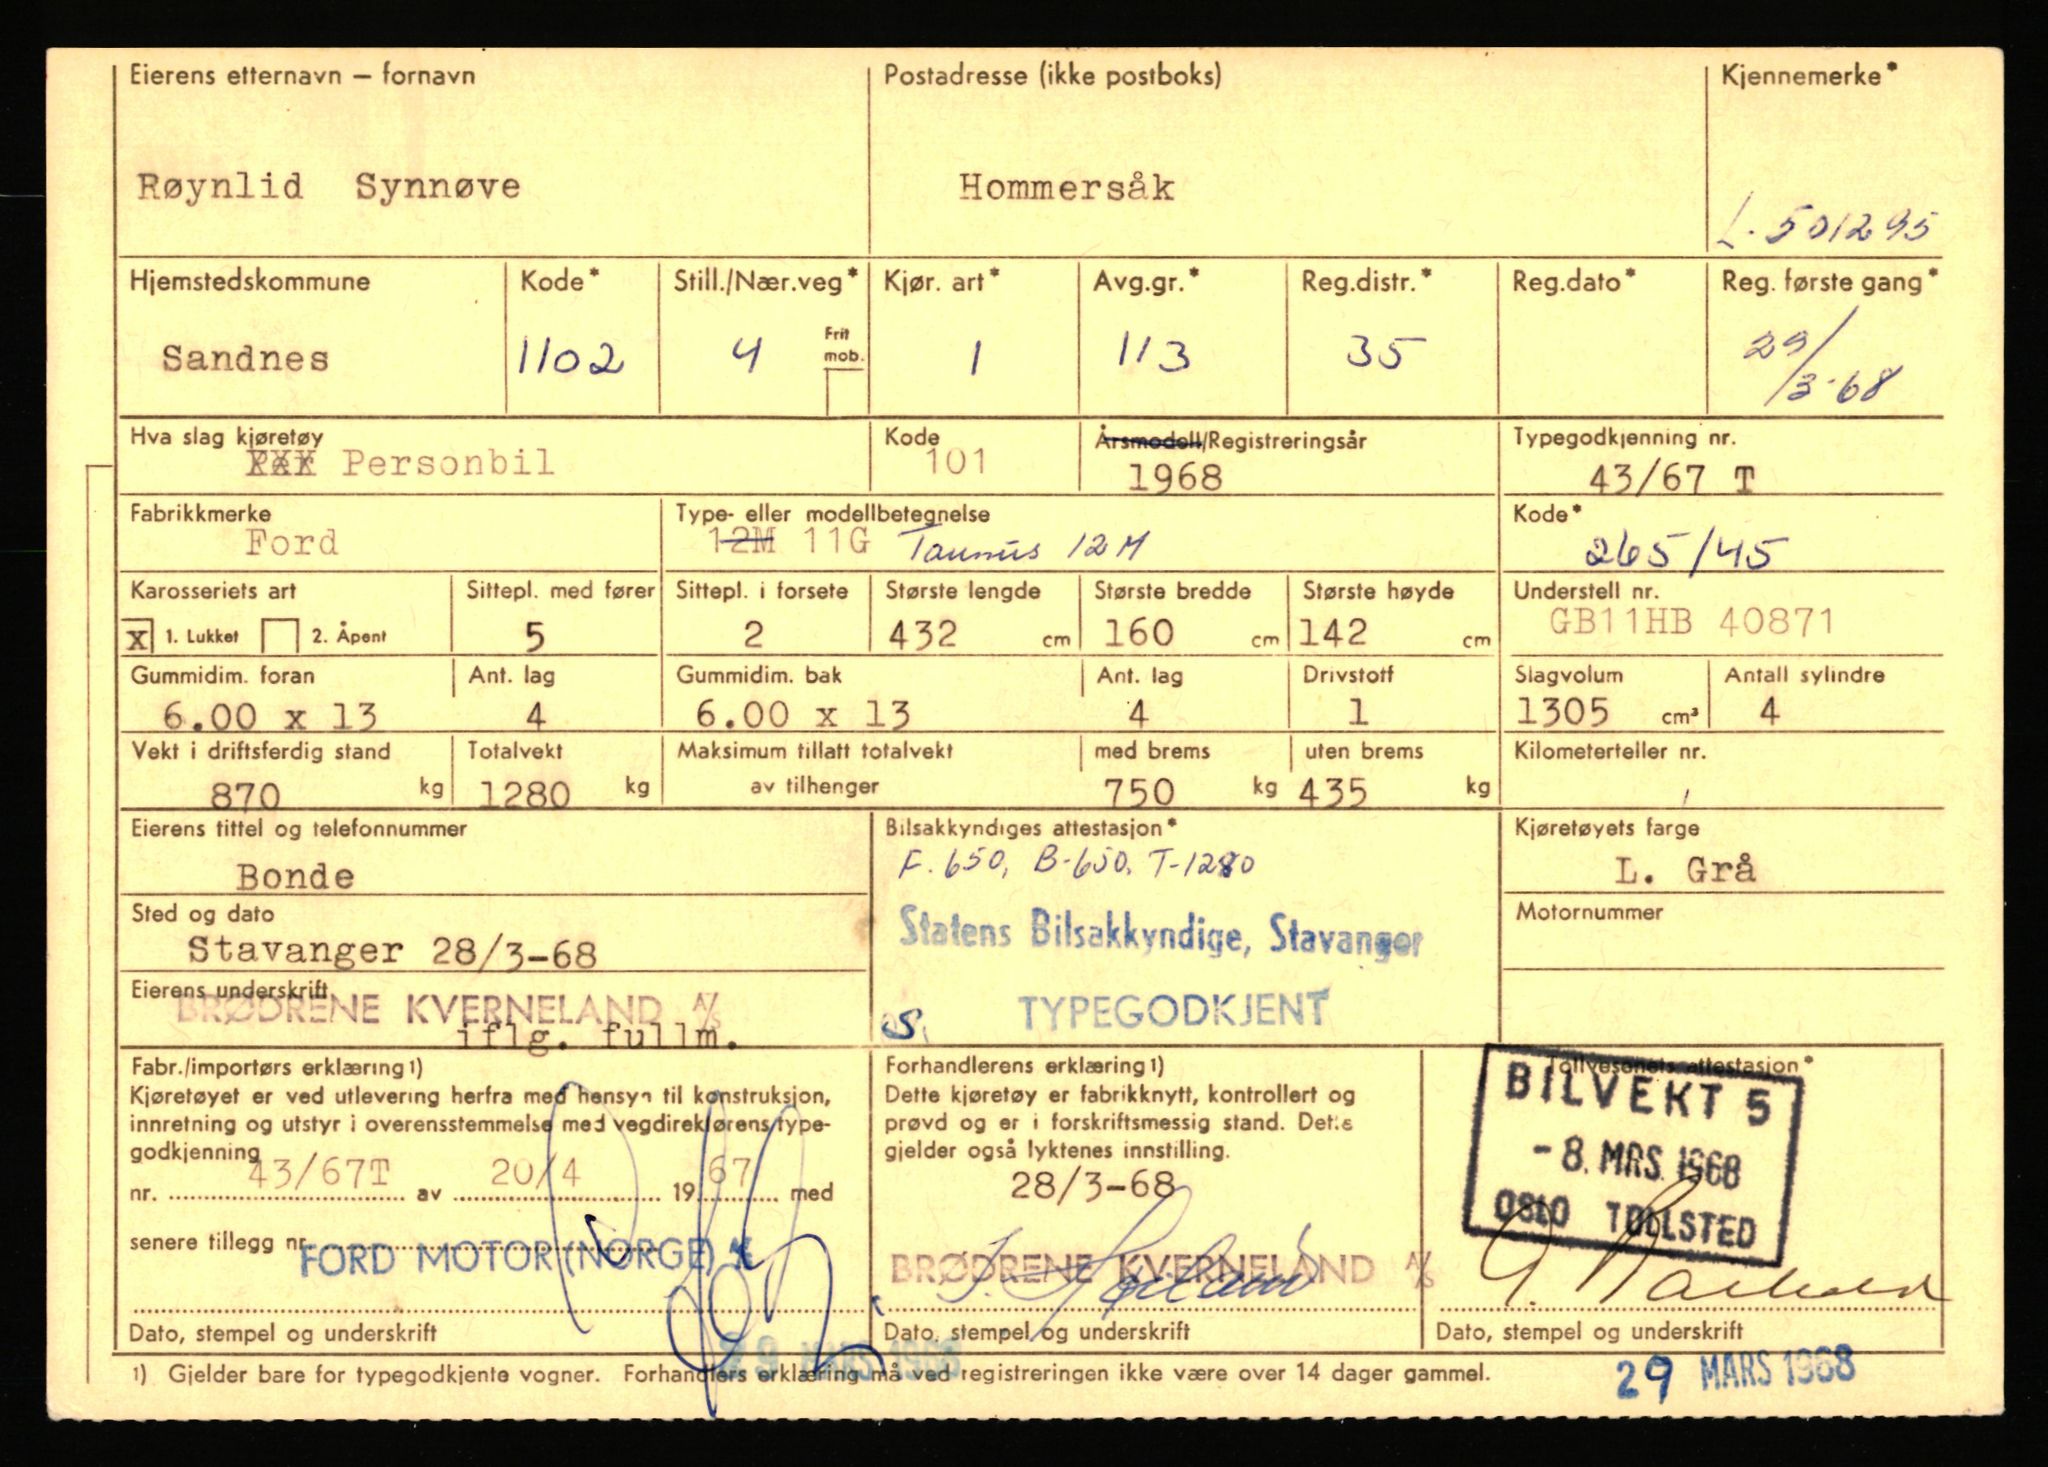 Eierens etternavn — fornavn Postadresse (ikke postboks) Kjennemerke*
Røynlid Synnøve Hommersåk
L-501295
Hjemstedskommune Kode* Still./Nær.veg* Kjør. art* Avg.gr.* Reg.distr.* Reg.dato* Reg. første gang*
Sandnes 1102 4 Frit mob. 1 113 35 29/3-68
Hva slag kjøretøy Kode Årsmodell/Registreringsår Typegodkjenning nr.
Personbil 101 1968 43/67 T
Fabrikkmerke Type- eller modellbetegnelse Kode*
Ford 12M 11G Taunus 12M 265/45
Karosseriets art Sittepl. med fører Sittepl. i forsete Største lengde Største bredde Største høyde Understell nr.
X 1. Lukket 2. Åpent 5 2 432 cm 160 cm 142 cm GB11HB 40871
Gummidim. foran Ant. lag Gummidim. bak Ant. lag Drivstoff Slagvolum Antall sylindre
6.00 x 13 4 6.00 x 13 4 1 1305 cm³ 4
Vekt i driftsferdig stand Totalvekt Maksimum tillatt totalvekt med brems uten brems Kilometerteller nr.
870 kg 1280 kg av tilhenger 750 kg 435 kg
Eierens tittel og telefonnummer Bilsakkyndiges attestasjon* Kjøretøyets farge
Bonde F.650, B-650, T-1280 L. Grå
Sted og dato Motornummer
Stavanger 28/3-68 Statens Bilsakkyndige, Stavanger
Eierens underskrift
BRØDRENE KVERNELAND A/S TYPEGODKJENT
iflg. fullm.
Fabr./importørs erklæring 1) Forhandlerens erklæring 1) Tollvesenets attestasjon*
Kjøretøyet er ved utlevering herfra med hensyn til konstruksjon, Dette kjøretøy er fabrikknytt, kontrollert og BILVEKT 5
innretning og utstyr i overensstemmelse med vegdirektørens type- prøvd og er i forskriftsmessig stand. Dette
godkjenning gjelder også lyktenes innstilling. - 8. MRS. 1968
nr. 43/67T av 20/4 1967 med 28/3-68
senere tillegg nr. OSLO TOLLSTED
FORD MOTOR (NORGE) A/S BRØDRENE KVERNELAND A/S
Dato, stempel og underskrift Dato, stempel og underskrift Dato, stempel og underskrift
29 MARS 1968
1) Gjelder bare for typegodkjente vogner. Forhandlers erklæring må ved registreringen ikke være over 14 dager gammel.
29 MARS 1968